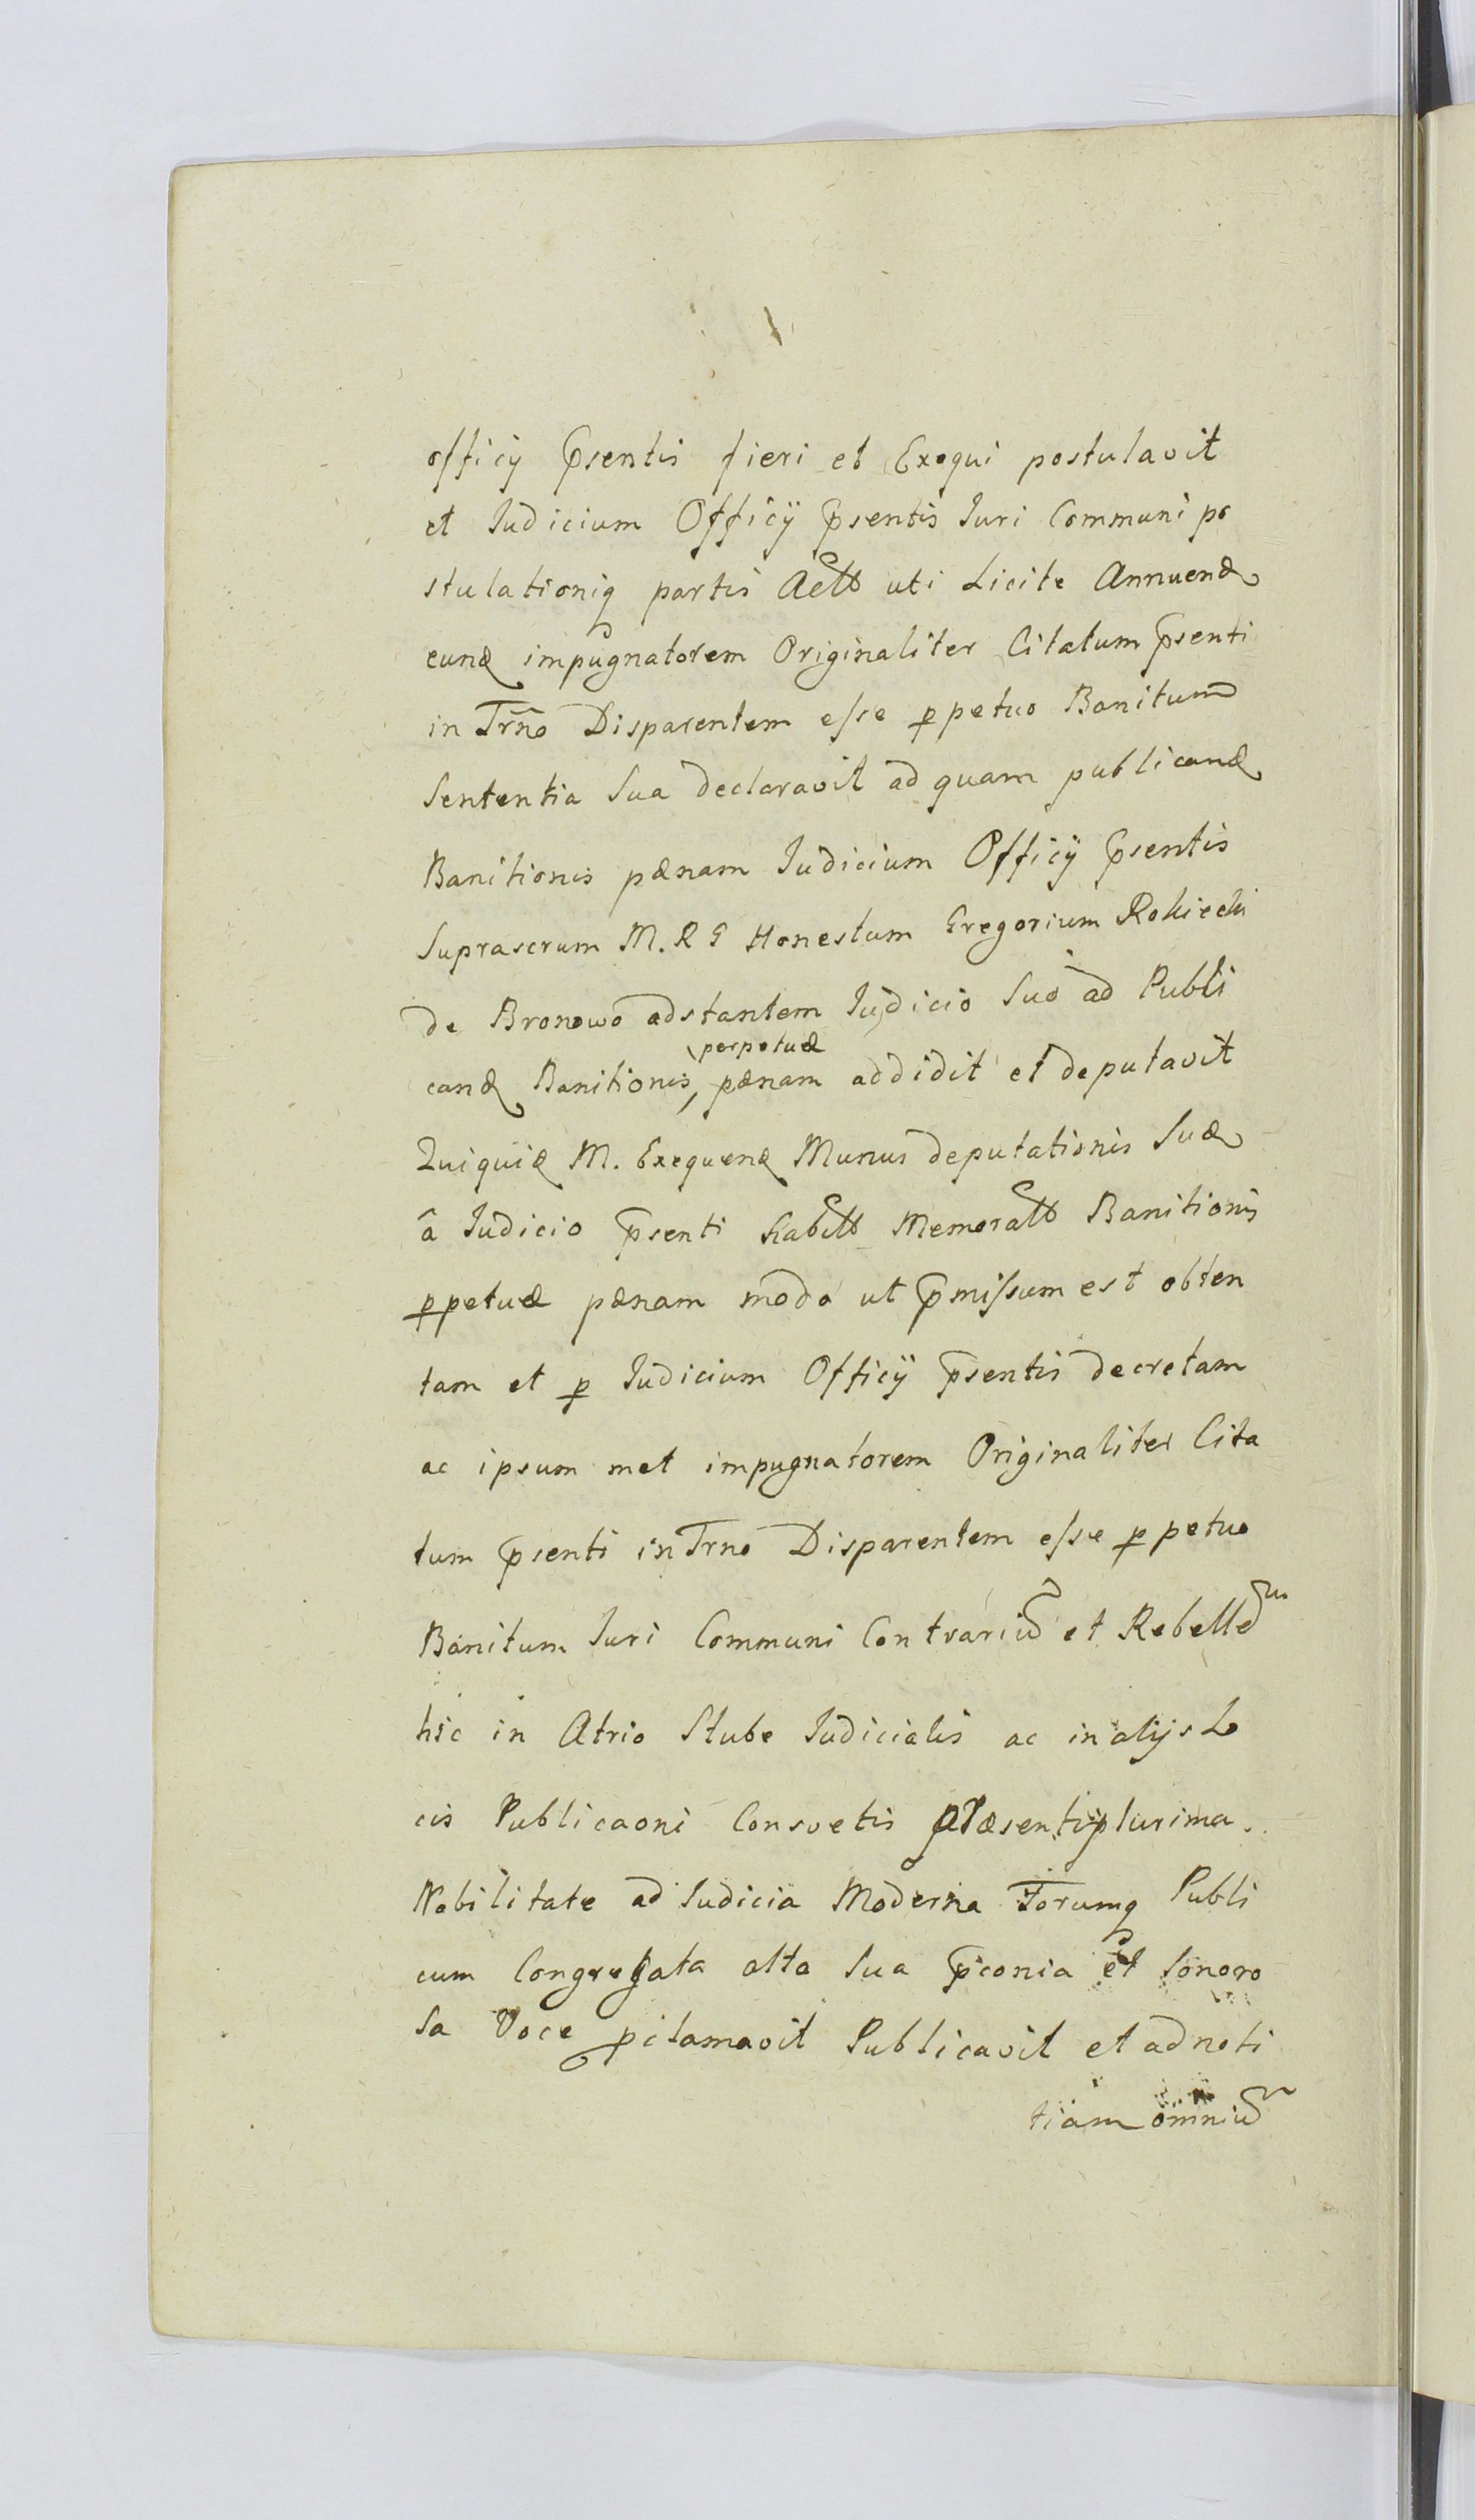 officij p̄sentis fieri et Exequi postulavit
et Iudicium Officÿ p̄sentis Iuri Communi po
stulationiq partis uti Licite Annuend
eund impugnatorem Originaliter Citatum p̄senti
in Tr̄no Disparentem esse ꝑpetuo Banitum
Sententia Sua declaravit ad quam publicand
Banitionis pænam Iudicium Officÿ p̄sentis
Suprascrum M. R G Honestum Gregorium Rokicki
de Bronowo adstantem Iudicio Suo ad Publi
cand Banitionis perpetuæ pænam addidit et deputavit
Quiquid M. Exequend Munus deputationis Suæ
â Iudicio p̄senti Banitionis
ꝑpetuæ pænam modo ut p̄missum est obten
tam et ꝑ Iudicium Officÿ p̄sentis decretam
ac ipsum met impugnatorem Originaliter Cita
tum p̄senti in Trno Disparentem esse ꝑpetuo
Banitum Iuri Communi Contrariū et Rebellem
hic in Atrio Stube Iudicialis ac in alijs Lo
cis Publicaoni Consvetis præsenti plurima
Nobilitate ad Iudicia Moderna Forumq Publi
cum Congregata alta Sua p̄conia et Sonoro
Sa Voce ꝓclamavit Publicavit et ad noti
tiam omniū